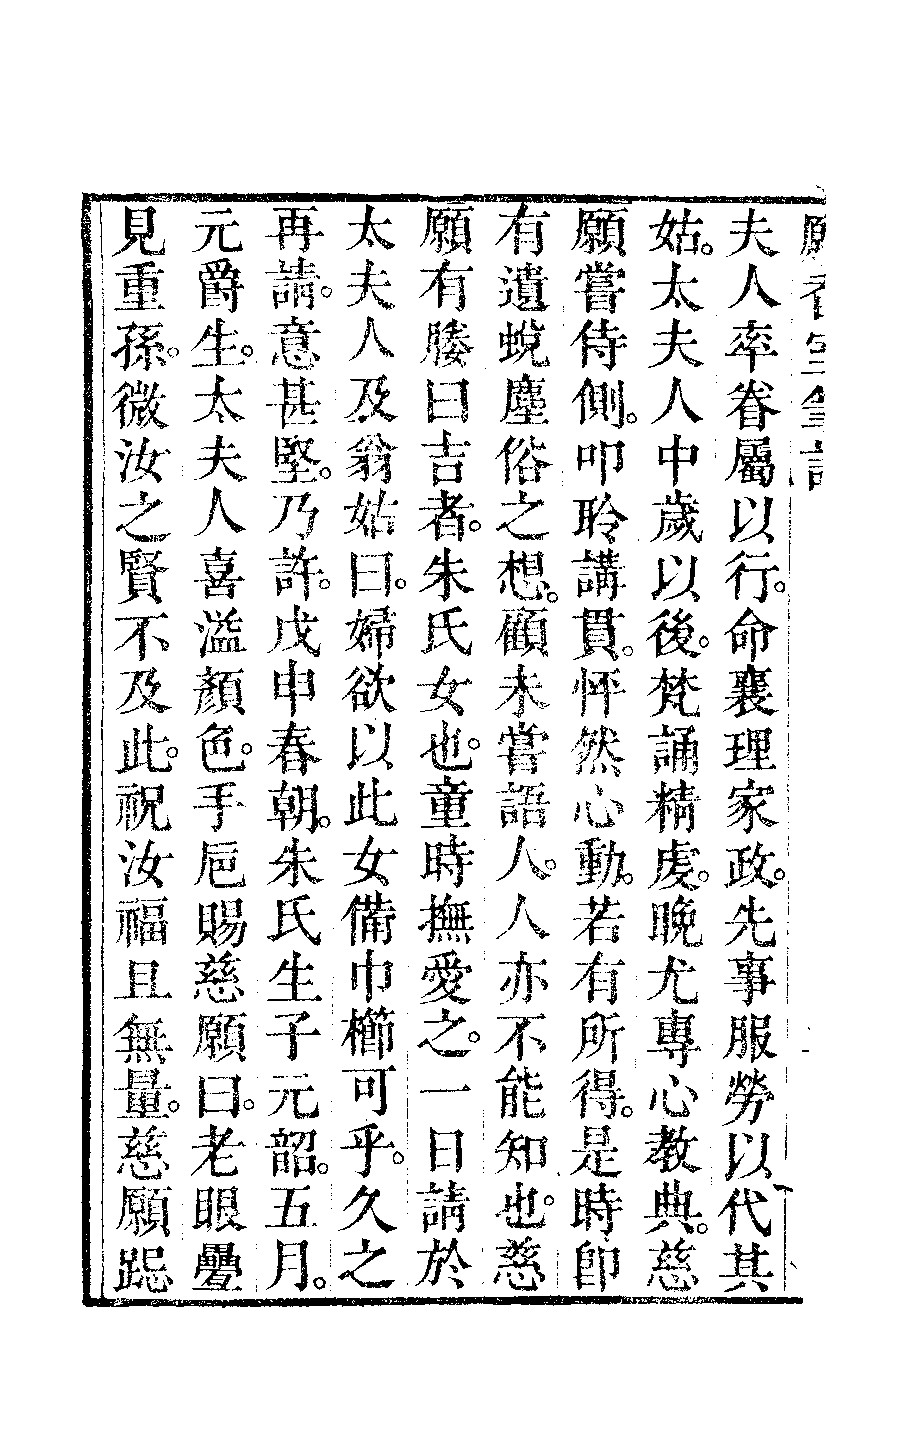 夫人率眷屬以行。命襄理家政。先事服勞以代其
姑。太夫人中歲以後。梵誦精虔。晚尤專心教典。慈
願嘗侍側。叩聆講貫。怦然心動。若有所得。是時即
有遺蛻塵俗之想。顧未嘗語人。人亦不能知也。慈
願有媵曰吉者。朱氏女也。童時撫愛之。一日請於
太夫人及翁姑曰。婦欲以此女備巾櫛可乎。久之
再請。意甚堅。乃許。戊申春朝。朱氏生子元韶。五月。
元爵生。太夫人喜溢顏色。手巵賜慈願曰。老眼疊
見重孫。微汝之賢不及此。祝汝福且無量。慈願跽